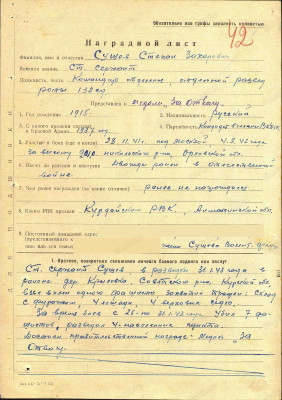 Обязательно все графы заполнять полностью
42
Наградной лист
Фамилия, имя и отчество Сущев Степан Захарович
Военное звание Ст. сержант
Должность, часть Командир отделения отдельной развед
роты 132 сд
Представляется к медали „За Отвагу"
1. Год рождения 1915 2. Национальность Русский
3. С какого времени состоит в Красной Армии 1937 4. Партийность Кандидат в члены ВКП(б)
5. Участие в боях (где и когда) 28.11.41 под Москвой
за высоту Орловской обл.
6. Имеет ли ранения и контузии Дважды ранен в отечественной
войне
7. Чем ранее награжден (за какие отличия) ранее не награждался
8. Каким РВК призван Курдайским РВК, Алмаатинской обл.
9. Постоянный домашний адрес
представляемого к
жена Сущева
1. Краткое, конкретное изложение личного боевого подвига или заслуг
Ст. сержант Сущев, в разведке 31.1.43 года в
районе дер. Советского р-на, Курской обл.
захватил трофеи: Склад
с фуражом, 4 лошади, 4 верховых седла.
За время боев с 26 по 31.1.43 года Убил 7 фа-
шистов, разведал 4 населенных пункта.
Достоин правительственной награды Медаль „За
Отвагу".